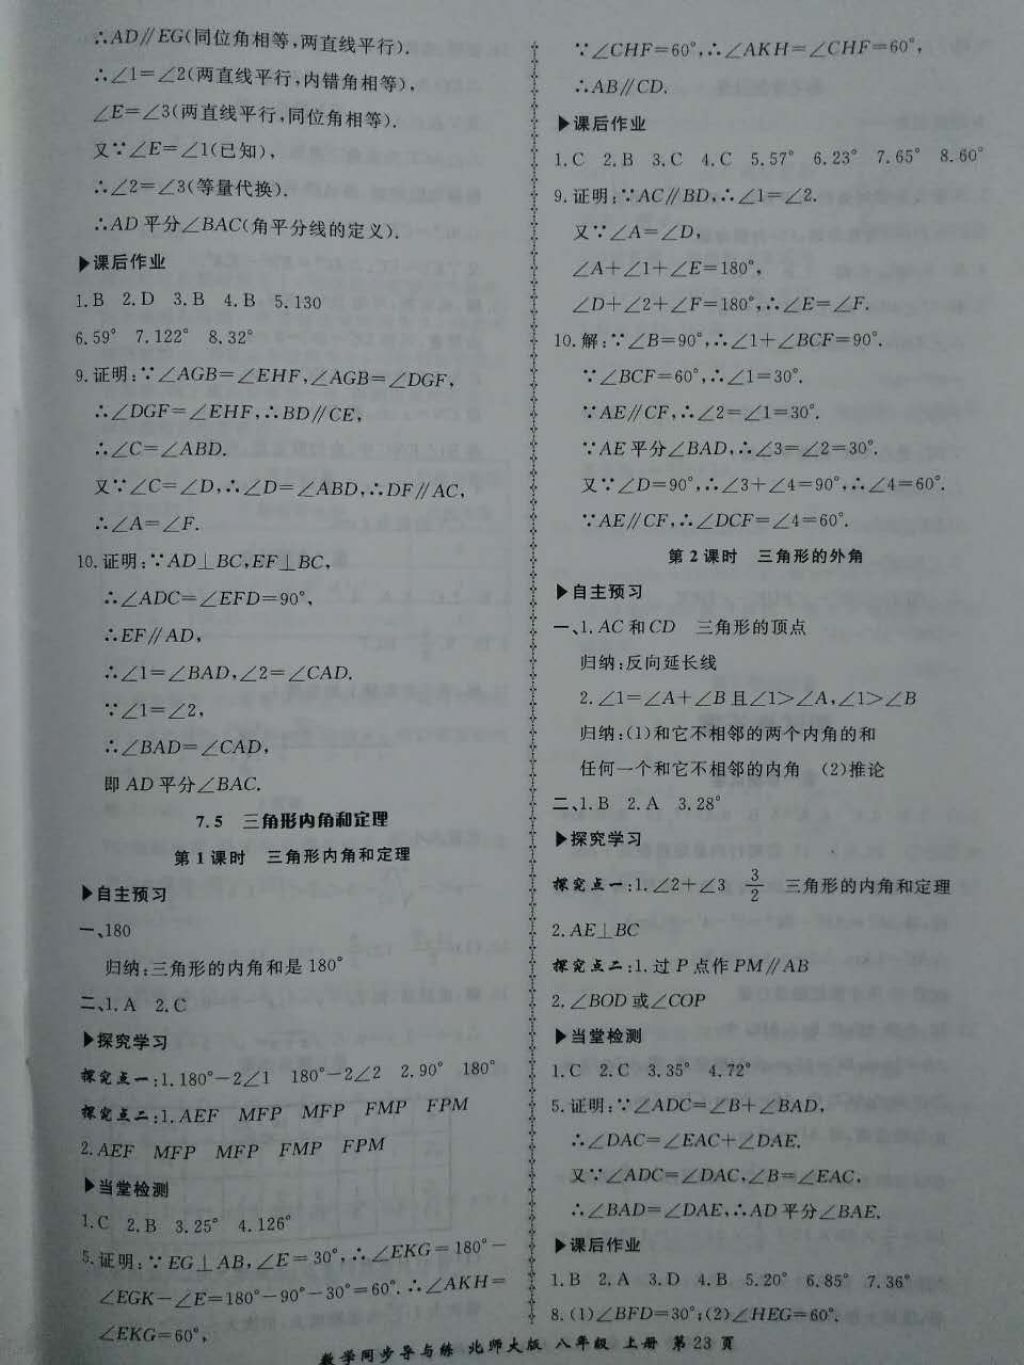 ∴AD∥EG(同位角相等,两直线平行).
∴∠1=∠2(两直线平行,内错角相等),
∠E=∠3(两直线平行,同位角相等).
又∵∠E=∠1(已知),
∴∠2=∠3(等量代换).
∴AD平分∠BAC(角平分线的定义).
▶课后作业
1.B 2.D 3.B 4.B 5.130
6.59° 7.122° 8.32°
9.证明:∵∠AGB=∠EHF,∠AGB=∠DGF,
∴∠DGF=∠EHF,∴BD∥CE,
∴∠C=∠ABD.
又∵∠C=∠D,∴∠D=∠ABD,∴DF∥AC,
∴∠A=∠F.
10.证明:∵AD⊥BC,EF⊥BC,
∴∠ADC=∠EFD=90°,
∴EF∥AD,
∴∠1=∠BAD,∠2=∠CAD.
∵∠1=∠2,
∴∠BAD=∠CAD,
即AD平分∠BAC.
7.5 三角形内角和定理
第1课时 三角形内角和定理
▶自主预习
一、180
归纳:三角形的内角和是180°
二、1.A 2.C
▶探究学习
探究点一:1.180°-2∠1 180°-2∠2 2.90° 180°
探究点二:1.AEF MFP MFP FMP FPM
2.AEF MFP MFP FMP FPM
▶当堂检测
1.C 2.B 3.25° 4.126°
5.证明:∵EG⊥AB,∠E=30°,∴∠EKG=180°-
∠EGK-∠E=180°-90°-30°=60°.∴∠AKH=
∠EKG=60°,
∵∠CHF=60°,∴∠AKH=∠CHF=60°,
∴AB∥CD.
▶课后作业
1.C 2.B 3.C 4.C 5.57° 6.23° 7.65° 8.60°
9.证明:∵AC∥BD,∴∠1=∠2.
又∵∠A=∠D,
∠A+∠1+∠E=180°,
∠D+∠2+∠F=180°,∴∠E=∠F.
10.解:∵∠B=90°,∴∠1+∠BCF=90°.
∵∠BCF=60°,∴∠1=30°.
∵AE∥CF,∴∠2=∠1=30°.
∵AE平分∠BAD,∴∠3=∠2=30°.
又∵∠D=90°,∴∠3+∠4=90°,∴∠4=60°.
∵AE∥CF,∴∠DCF=∠4=60°.
第2课时 三角形的外角
▶自主预习
一、1.AC和CD 三角形的顶点
归纳:反向延长线
2.∠1=∠A+∠B且∠1>∠A,∠1>∠B
归纳:(1)和它不相邻的两个内角的和
任何一个和它不相邻的内角 (2)推论
二、1.B 2.A 3.28°
▶探究学习
探究点一:1.∠2+∠3 3/2 三角形的内角和定理
2.AE⊥BC
探究点二:1.过P点作PM∥AB
2.∠BOD或∠COP
▶当堂检测
1.C 2.C 3.35° 4.72°
5.证明:∵∠ADC=∠B+∠BAD,
∴∠DAC=∠EAC+∠DAE.
又∵∠ADC=∠DAC,∠B=∠EAC,
∴∠BAD=∠DAE,∴AD平分∠BAE.
▶课后作业
1.B 2.A 3.D 4.B 5.20° 6.85° 7.36°
8.(1)∠BFD=30°;(2)∠HEG=60°.
数学同步导与练 北师大版 八年级 上册 第23页